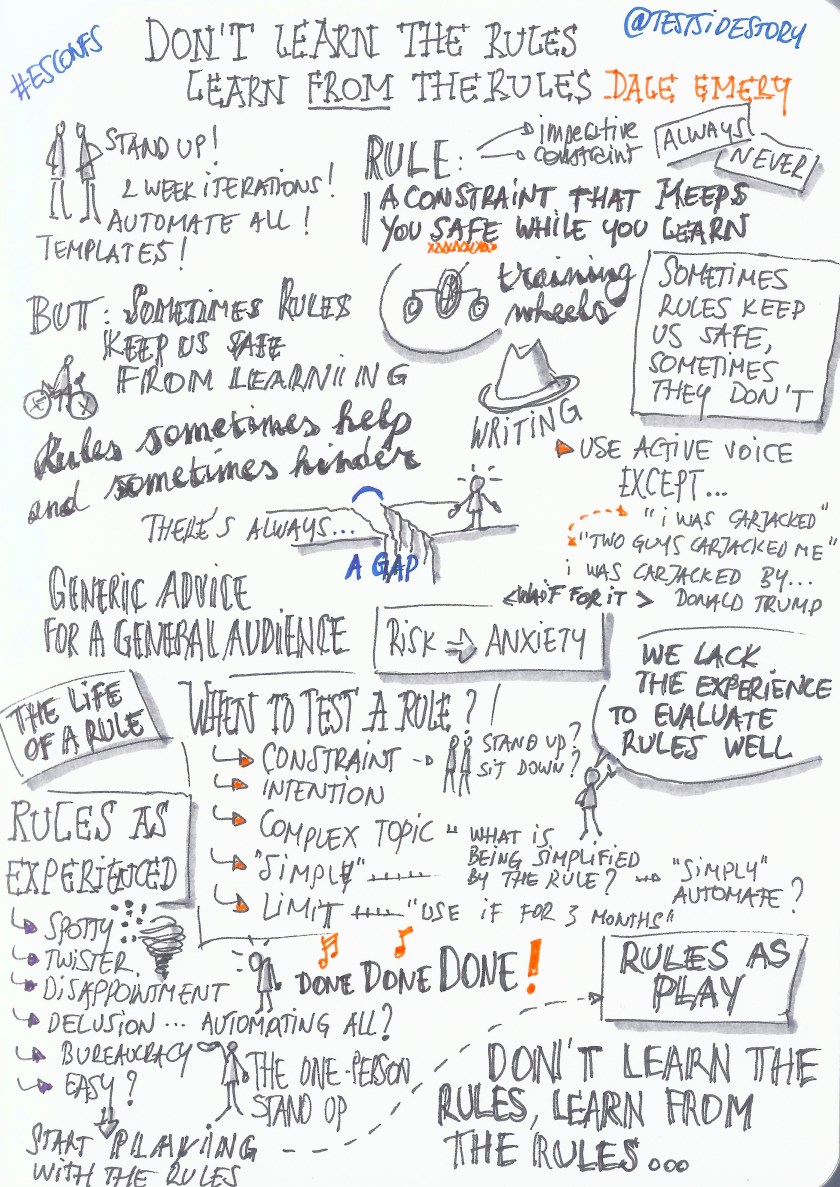 #ESCONFS
DON'T LEARN THE RULES
@TESTSIDESTORY
LEARN FROM THE RULES DALE EMERY
STAND UP!
2 WEEK ITERATIONS!
AUTOMATE ALL!
TEMPLATES!
RULE:
imperative
constraint
ALWAYS
NEVER
A CONSTRAINT THAT KEEPS
YOU SAFE WHILE YOU LEARN
training
wheels
SOMETIMES
RULES KEEP
US SAFE,
SOMETIMES
THEY DON'T
BUT: SOMETIMES RULES
KEEP US SAFE
FROM LEARNIING
Rules sometimes help
and sometimes hinder
WRITING
USE ACTIVE VOICE
EXCEPT...
"I WAS CARJACKED"
"TWO GUYS CARJACKED ME"
I WAS CARJACKED BY...
<WAIT FOR IT> DONALD TRUMP
THERE'S ALWAYS...
A GAP
GENERIC ADVICE
FOR A GENERAL AUDIENCE
RISK ⇒ ANXIETY
WE LACK
THE EXPERIENCE
TO EVALUATE
RULES WELL
THE LIFE
OF A RULE
WHEN TO TEST A RULE?!
CONSTRAINT
STAND UP?
SIT DOWN?
INTENTION
COMPLEX TOPIC
"SIMPLY"
"WHAT IS
BEING SIMPLIFIED
BY THE RULE?
"SIMPLY"
AUTOMATE?
LIMIT "USE IF FOR 3 MONTHS"
RULES AS
EXPERIENCED
SPOTTY
TWISTER
DISAPPOINTMENT
DELUSION... AUTOMATING ALL?
BUREAUCRACY
EASY?
DONE DONE DONE!
THE ONE-PERSON
STAND UP
START PLAYING
WITH THE RULES
RULES AS
PLAY
DON'T LEARN THE
RULES, LEARN FROM
THE RULES...